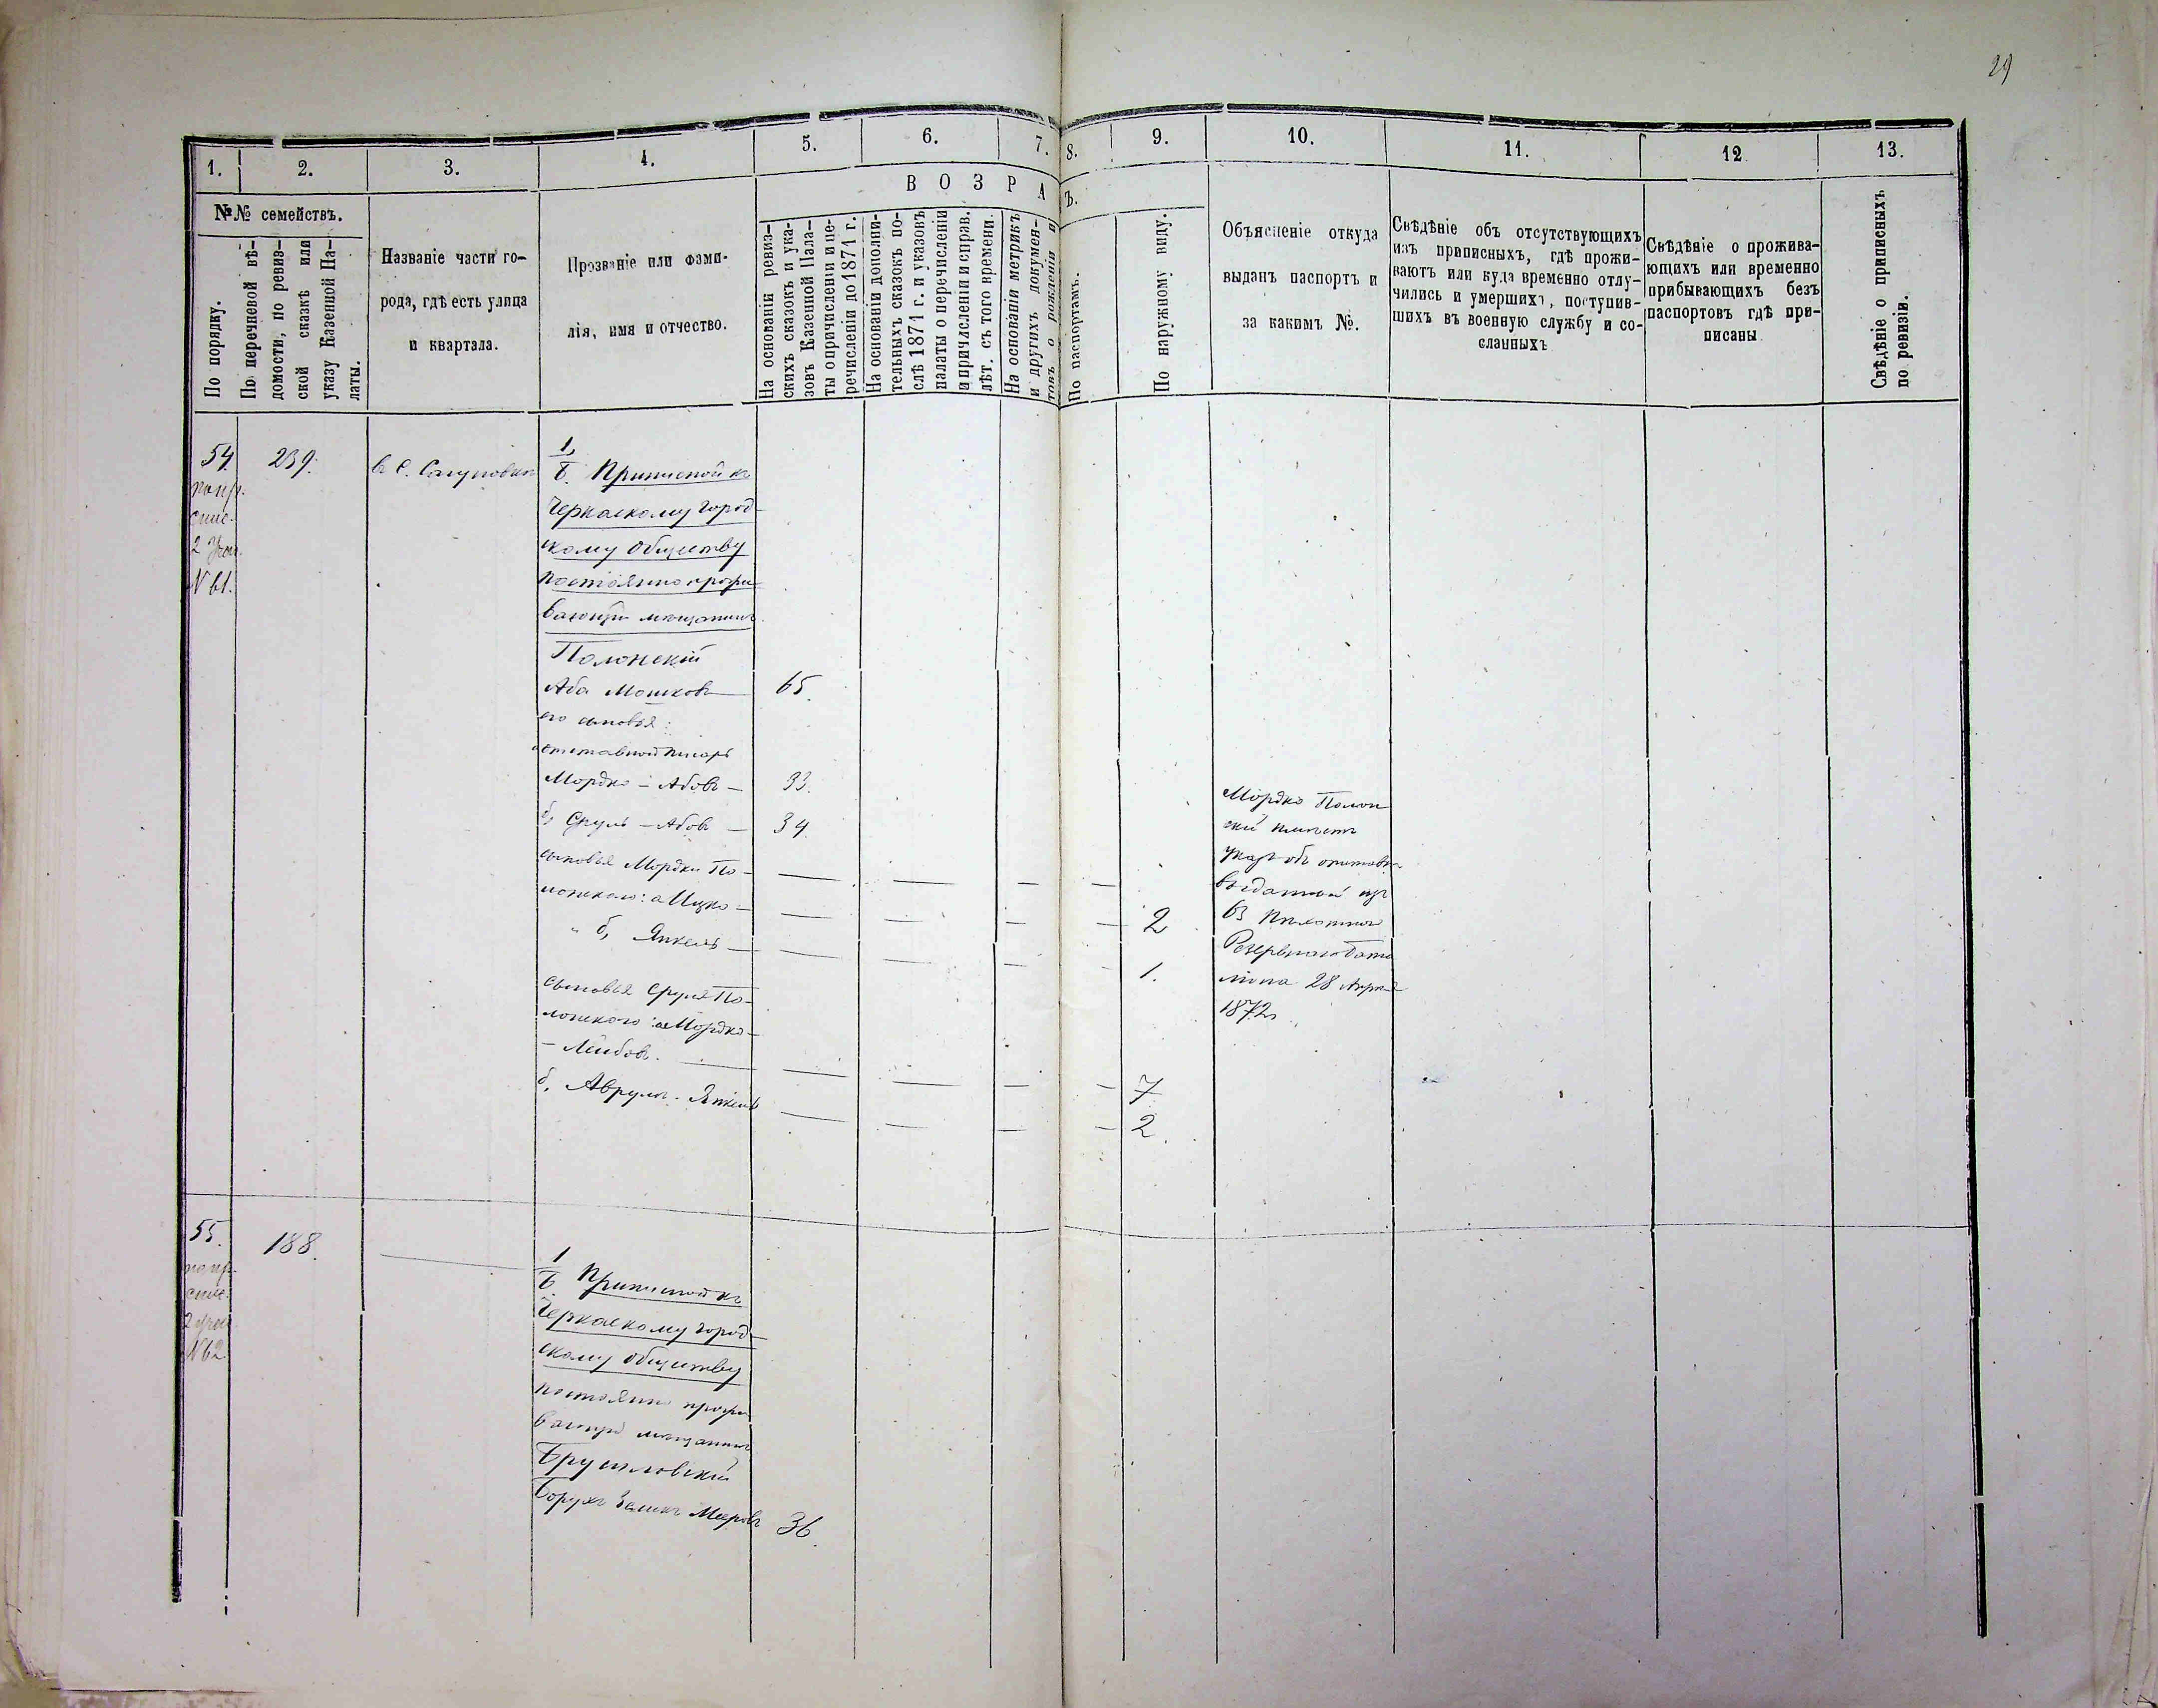 29
1. 2. 3. 4. 5. 6. 7. 8. 9. 10. 11. 12 13.
№№ семействъ.
По порядку.
По перечневой вѣ-
домости, по ревиз-
ской сказкѣ или
указу Казенной Па-
латы.
Названіе части го-
рода, гдѣ есть улица
и квартала.
Прозваніе или фами-
лія, имя и отчество.
ВОЗРА
Ъ.
На основаніи ревиз-
скихъ сказокъ и ука-
зовъ Казенной Пала-
ты о причисленіи и пе-
речисленіи до 1871 г.
На основаніи дополни-
тельныхъ сказокъ по-
слѣ 1871 г. и указовъ
палаты о перечисленіи
и причисленіи и справ.
лѣт. съ того времени.
На основаніи метрикъ
и другихъ докумен-
товъ о рожденіи и
По паспортамъ.
По наружному виду.
Объясненіе откуда
выданъ паспортъ и
за какимъ №.
Свѣдѣніе объ отсутствующихъ
изъ приписныхъ, гдѣ прожи-
ваютъ или куда временно отлу-
чились и умершихъ, поступив-
шихъ въ военную службу и со-
сланныхъ
Свѣдѣніе о прожива-
ющихъ или временно
прибывающихъ безъ
паспортовъ гдѣ при-
писаны
Свѣдѣніе о приписныхъ
по ревизіи.
54.
спис.
2 Учас.
N 61.
239.
в С.
1,
Б. Приписной къ
Черкаскому город-
скому обществу
постоянно прожи-
вающій мѣщанинъ
Полонскій
Аба Мошковъ 65.
его сыновья:
отставной писарь
Мордко - Абовъ - 33.
б, Сруль - Абовъ - 34.
сыновья Мордки По-
лонскаго: а Ицко - 2
" б, Янкель - 1.
сыновья Сруля По-
лонского: а Мордко-
- Лейбовъ. 7
б, Аврумъ - Янкель 2.
Мордко Полон
скій имѣетъ
указъ объ отставкѣ
выданный изъ
63 Пѣхотнаго
Резервнаго Бата
ліона 28 Апрѣля
1872
55.
спис.
2 учас
N 62
188.
1
Б. Приписной къ
Черкаскому город-
скому обществу
постоянно прожи-
вающій мѣщанинъ
Брусиловскій
Борухъ Зелик Мееровъ 36.